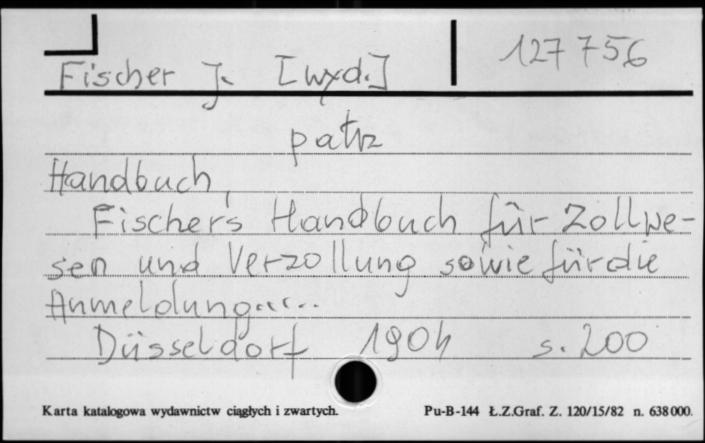 Fischer J. [wyd.]
127 756
patrz
Handbuch,
Fischer's Handbuch für Zollwe-
sen und Verzollung sowie für die
Anmeldung.....
Düsseldorf 1904 s. 200
Karta katalogowa wydawnictw ciągłych i zwartych.
Pu-B-144 Ł.Z.Graf. Z. 120/15/82 n. 638000.